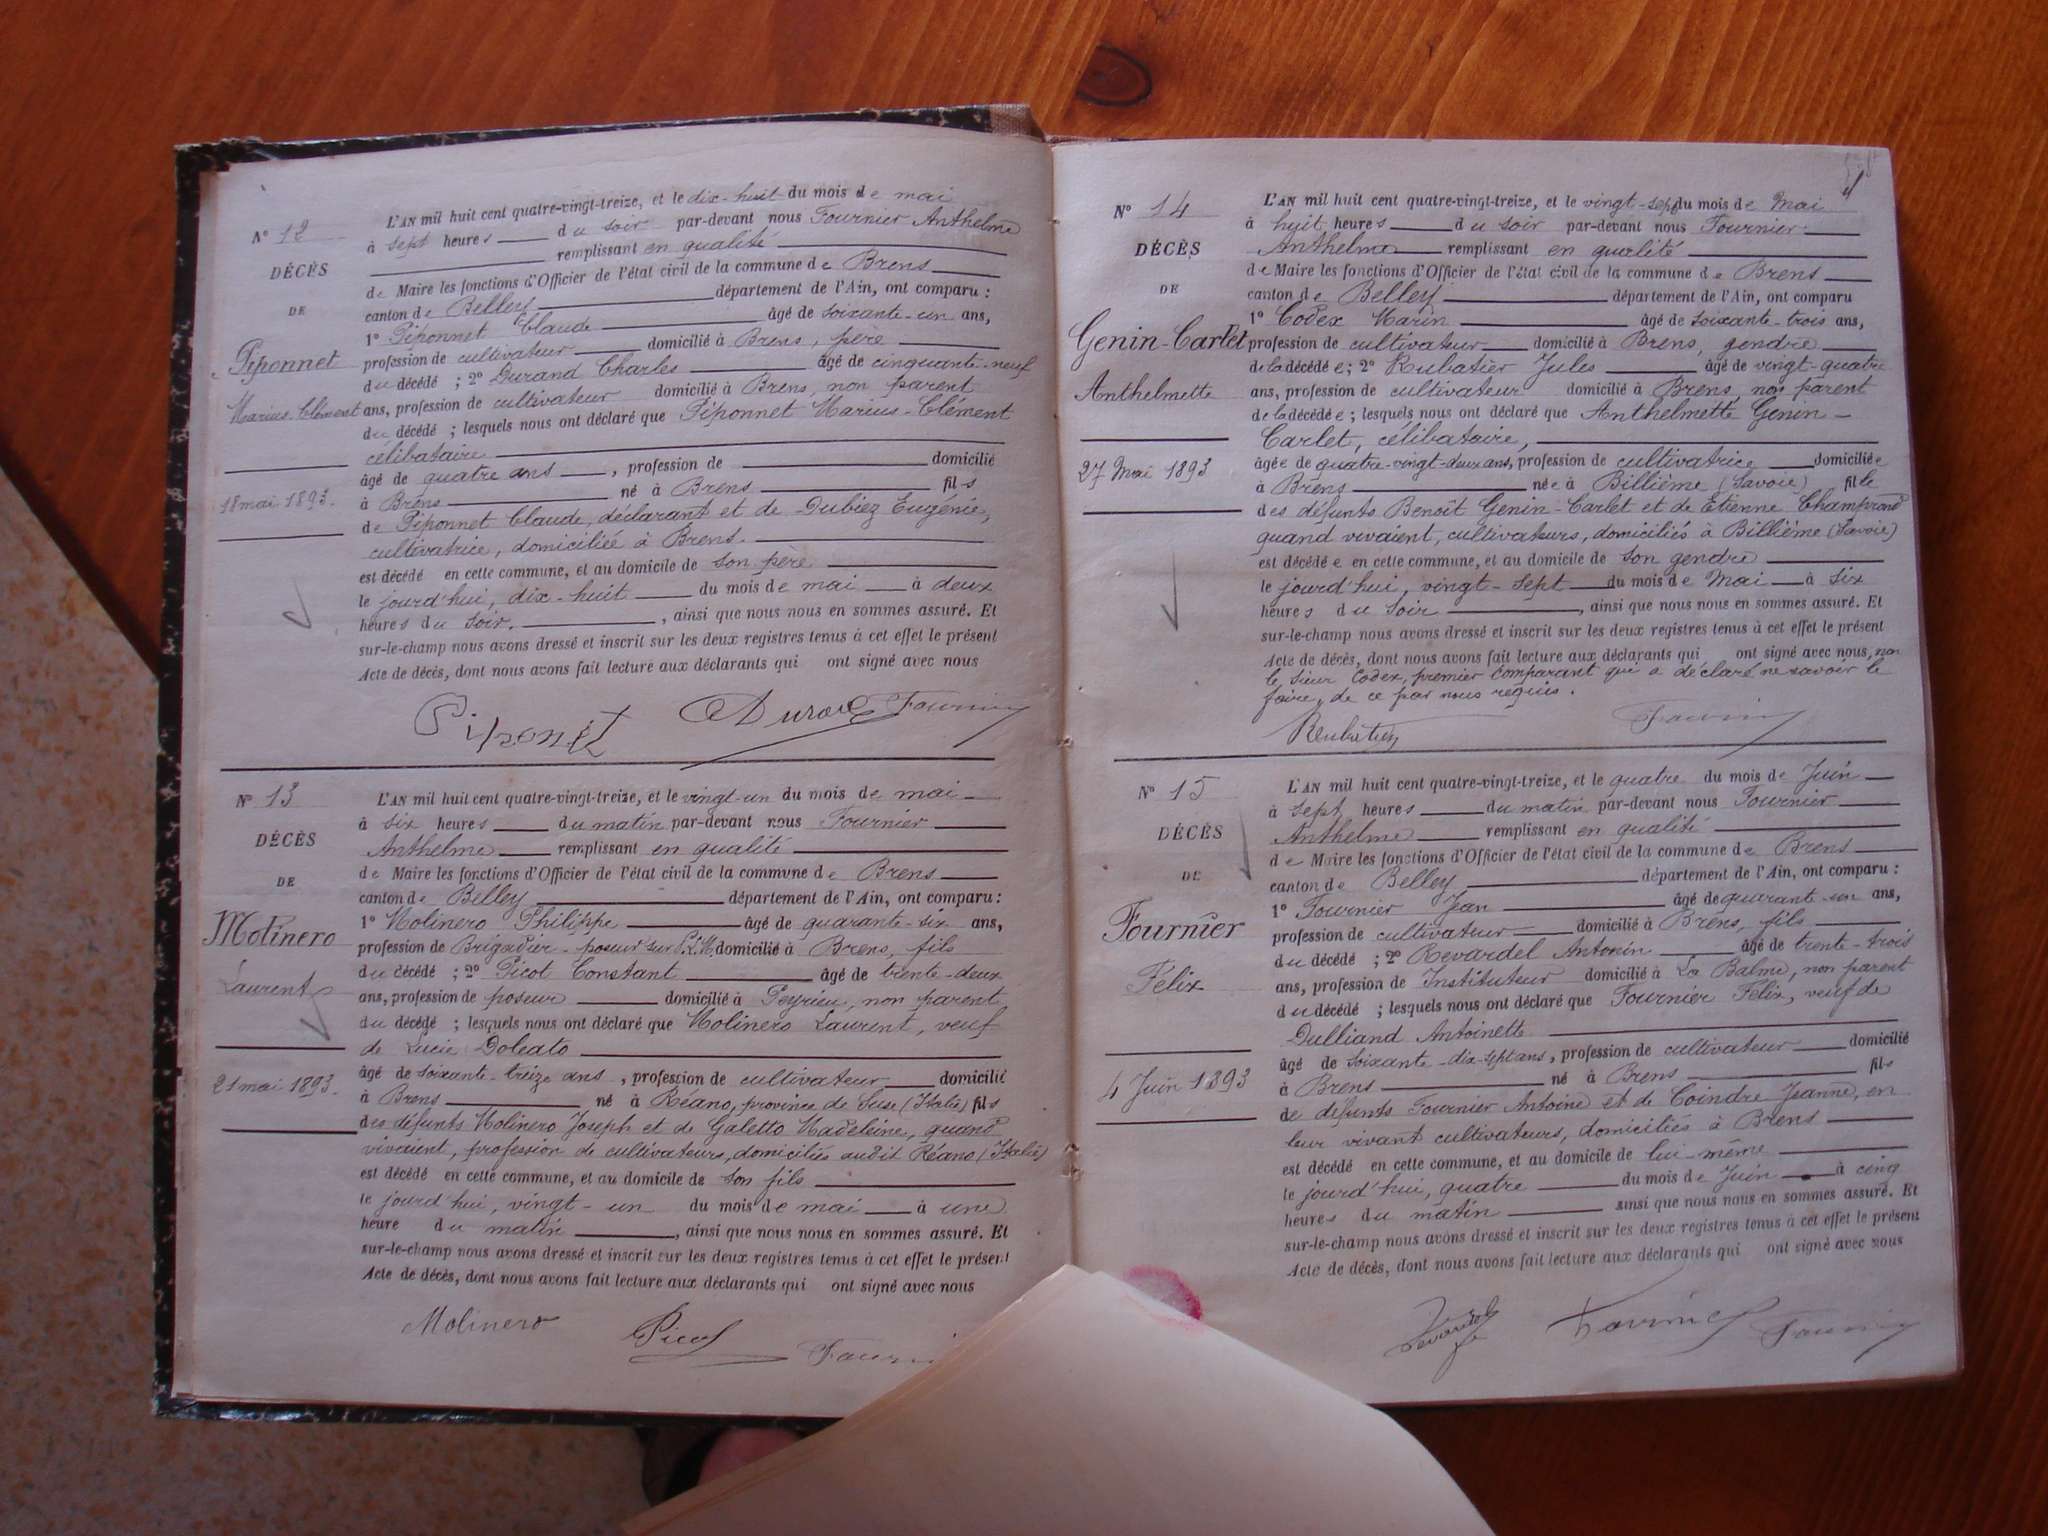 N° 12
DÉCÈS
DE
Piponnet
Marius-Clément
18 mai 1893.
L'AN mil huit cent quatre-vingt-treize, et le dix-huit du mois de mai
à sept heures du soir par-devant nous Fournier Anthelme
remplissant en qualité
de Maire les fonctions d'Officier de l'état civil de la commune de Brens
canton de Belley département de l'Ain, ont comparu :
1° Piponnet Claude âgé de soixante-un ans,
profession de cultivateur domicilié à Brens, père
du décédé ; 2° Durand Charles âgé de cinquante-neuf
ans, profession de cultivateur domicilié à Brens, non parent
du décédé ; lesquels nous ont déclaré que Piponnet Marius-Clément
célibataire
âgé de quatre ans, profession de domicilié
à Brens né à Brens fils
de Piponnet Claude, déclarant et de Dubiez Eugénie,
cultivatrice, domiciliée à Brens.
est décédé en cette commune, et au domicile de son père
le jourd'hui, dix-huit du mois de mai à deux
heures du soir, ainsi que nous nous en sommes assuré. Et
sur-le-champ nous avons dressé et inscrit sur les deux registres tenus à cet effet le présent
Acte de décès, dont nous avons fait lecture aux déclarants qui ont signé avec nous
Piponet Durand Fournier
N° 13
DÉCÈS
DE
Molinero
Laurent
21 mai 1893.
L'AN mil huit cent quatre-vingt-treize, et le vingt-un du mois de mai
à six heures du matin par-devant nous Fournier
Anthelme remplissant en qualité
de Maire les fonctions d'Officier de l'état civil de la commune de Brens
canton de Belley département de l'Ain, ont comparu :
1° Molinero Philippe âgé de quarante-six ans,
profession de Brigadier-poseur sur P.L.M, domicilié à Brens, fils
du décédé ; 2° Picot Constant âgé de trente-deux
ans, profession de poseur domicilié à Peyrieu, non parent
du décédé ; lesquels nous ont déclaré que Molinero Laurent, veuf
de Lucie Doleato
âgé de soixante-treize ans, profession de cultivateur domicilié
à Brens né à Réano, province de Suse (Italie) fils
des défunts Molinero Joseph et de Galetto Madeleine, quand
vivaient, profession de cultivateurs, domiciliés audit Réano (Italie)
est décédé en cette commune, et au domicile de son fils
le jourd'hui, vingt-un du mois de mai à une
heure du matin, ainsi que nous nous en sommes assuré. Et
sur-le-champ nous avons dressé et inscrit sur les deux registres tenus à cet effet le présent
Acte de décès, dont nous avons fait lecture aux déclarants qui ont signé avec nous
Molinero Picot
N° 14
DÉCÈS
DE
Genin-Carlet
Anthelmette
27 Mai 1893
L'AN mil huit cent quatre-vingt-treize, et le vingt-sept du mois de Mai
à huit heures du soir par-devant nous Fournier
Anthelme remplissant en qualité
de Maire les fonctions d'Officier de l'état civil de la commune de Brens
canton de Belley département de l'Ain, ont comparu
1° Codex Marin âgé de soixante-trois ans,
profession de cultivateur domicilié à Brens, gendre
de la décédée ; 2° Rubatier Jules âgé de vingt-quatre
ans, profession de cultivateur domicilié à Brens, non parent
de la décédée ; lesquels nous ont déclaré que Anthelmette Genin-
Carlet, célibataire,
âgée de quatre-vingt-deux ans, profession de cultivatrice domiciliée
à Brens née à Billième (Savoie) fille
des défunts Benoît Genin-Carlet et de Etienne Champrond
quand vivaient, cultivateurs, domiciliés à Billième (Savoie)
est décédée en cette commune, et au domicile de son gendre
le jourd'hui, vingt-sept du mois de Mai à six
heures du soir, ainsi que nous nous en sommes assuré. Et
sur-le-champ nous avons dressé et inscrit sur les deux registres tenus à cet effet le présent
Acte de décès, dont nous avons fait lecture aux déclarants qui ont signé avec nous, non
le sieur Codex, premier comparant qui a déclaré ne savoir le
faire, de ce par nous requis.
Fournier
N° 15
DÉCÈS
DE
Fournier
Félix
4 Juin 1893
L'AN mil huit cent quatre-vingt-treize, et le quatre du mois de Juin
à sept heures du matin par-devant nous Fournier
Anthelme remplissant en qualité
de Maire les fonctions d'Officier de l'état civil de la commune de Brens
canton de Belley département de l'Ain, ont comparu :
1° Fournier Jean âgé de quarante-un ans,
profession de cultivateur domicilié à Brens, fils
du décédé ; 2° Revardel Antonin âgé de trente-trois
ans, profession de Instituteur domicilié à La Balme, non parent
du décédé ; lesquels nous ont déclaré que Fournier Félix, veuf de
Dulliand Antoinette
âgé de soixante-dix-sept ans, profession de cultivateur domicilié
à Brens né à Brens fils
de défunts Fournier Antoine et de Coindre Jeanne, en
leur vivant cultivateurs, domiciliés à Brens
est décédé en cette commune, et au domicile de lui-même
le jourd'hui, quatre du mois de Juin à cinq
heures du matin ainsi que nous nous en sommes assuré. Et
sur-le-champ nous avons dressé et inscrit sur les deux registres tenus à cet effet le présent
Acte de décès, dont nous avons fait lecture aux déclarants qui ont signé avec nous
Revardel Fournier